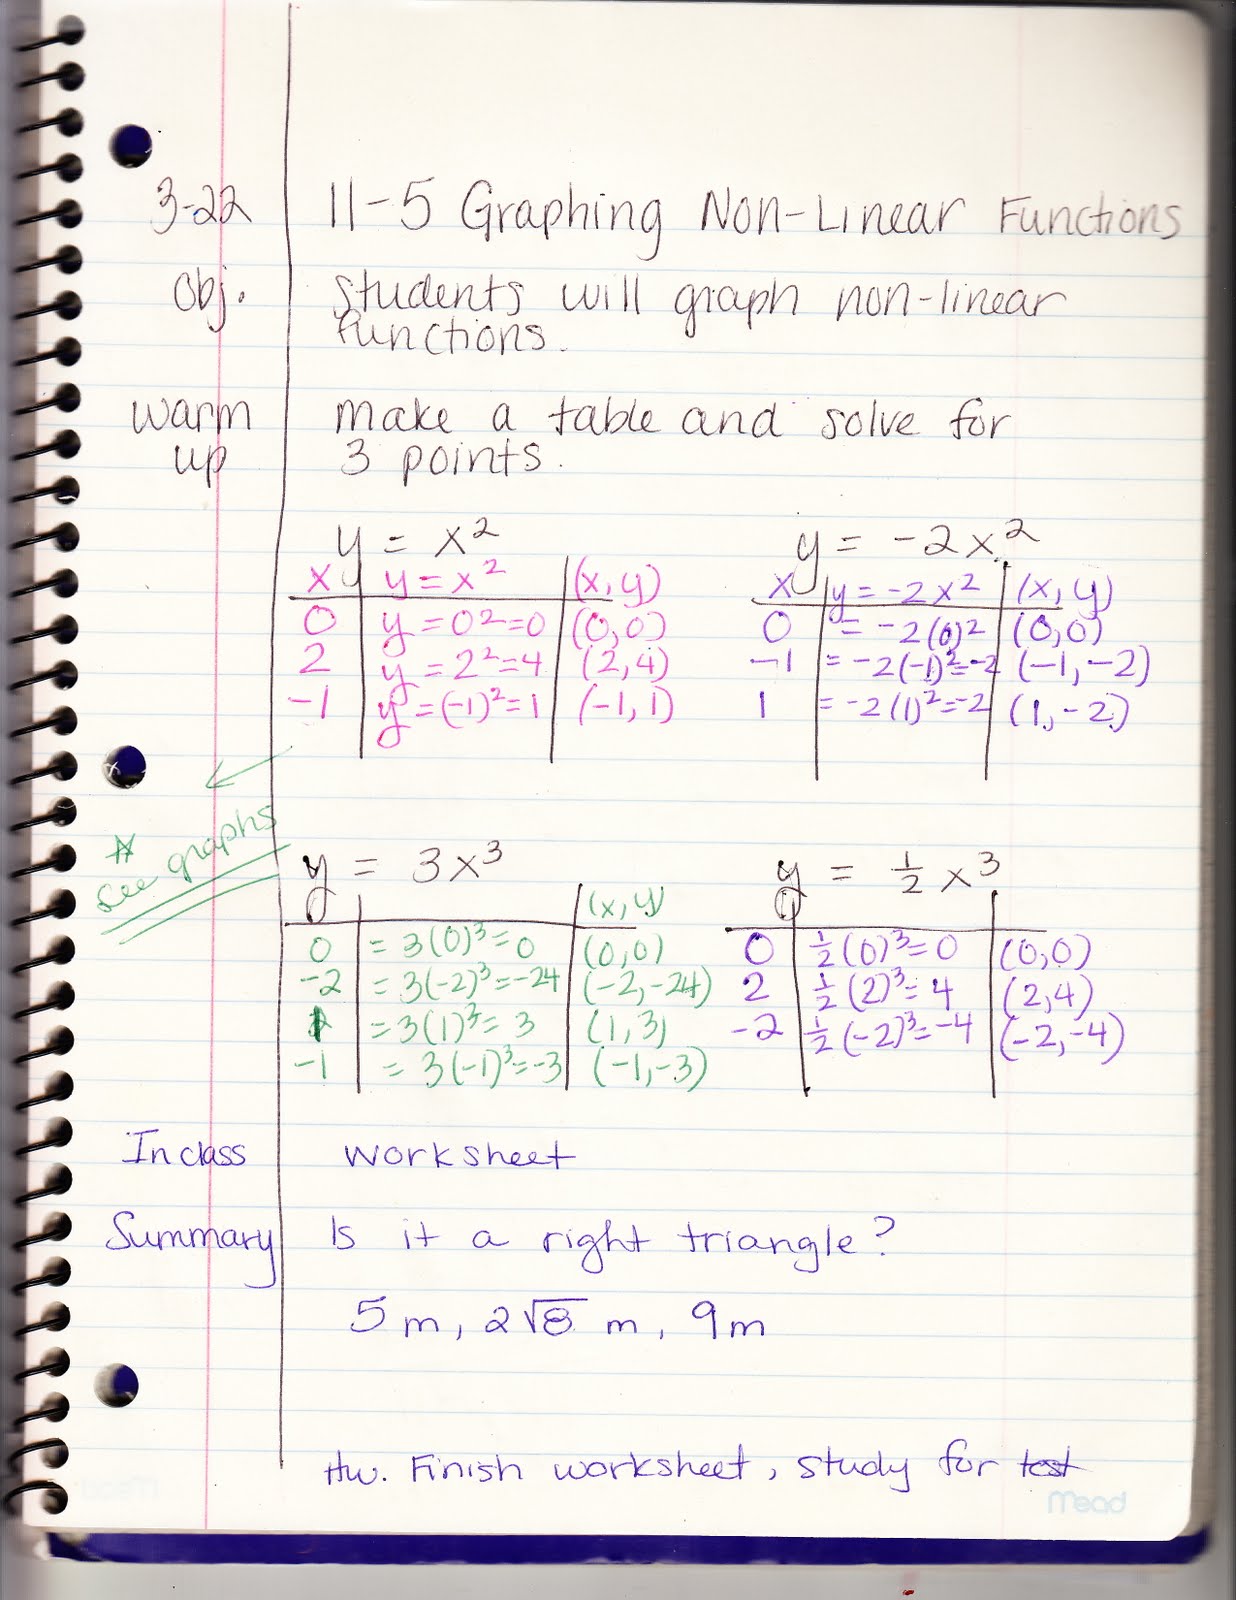 3-22 11-5 Graphing Non-Linear Functions
Obj. students will graph non-linear
functions.
warm make a table and solve for
up 3 points.
y = x² y = -2x²
x y = x² (x, y) x y = -2x² (x, y)
0 y = 0² = 0 (0, 0) 0 = -2(0)² (0, 0)
2 y = 2² = 4 (2, 4) -1 = -2(-1)² = -2 (-1, -2)
-1 y = (-1)² = 1 (-1, 1) 1 = -2(1)² = -2 (1, -2)
* see graphs
y = 3x³ y = ½ x³
(x, y)
0 = 3(0)³ = 0 (0, 0) 0 ½(0)³ = 0 (0, 0)
-2 = 3(-2)³ = -24 (-2, -24) 2 ½(2)³ = 4 (2, 4)
1 = 3(1)³ = 3 (1, 3) -2 ½(-2)³ = -4 (-2, -4)
-1 = 3(-1)³ = -3 (-1, -3)
In class worksheet
Summary Is it a right triangle?
5 m, 2√8 m, 9 m
Hw. Finish worksheet, study for test
Mead